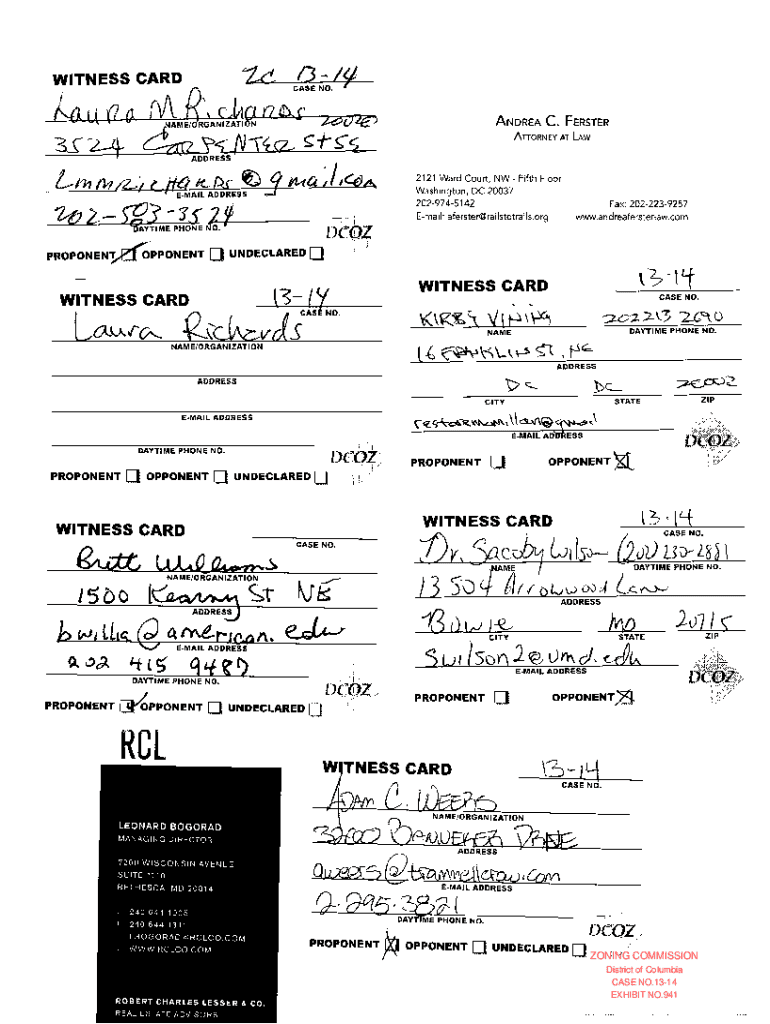 WITNESS CARD
ZC 13-14
CASE NO.
Laura M Richards 20020
NAME/ORGANIZATION
3524 CARPENTER St SE
ADDRESS
Lmmrichards@gmail.com
E-MAIL ADDRESS
202-583-3524
DAYTIME PHONE NO.
DCOZ
PROPONENT OPPONENT UNDECLARED
ANDREA C. FERSTER
ATTORNEY AT LAW
2121 Ward Court, NW - Fifth Floor
Washington, DC 20037
202-974-5142 Fax: 202-223-9257
E-mail: aferster@railstotrails.org www.andreaferster-law.com
WITNESS CARD
13-14
CASE NO.
Laura Richards
NAME/ORGANIZATION
ADDRESS
E-MAIL ADDRESS
DAYTIME PHONE NO.
DCOZ
PROPONENT OPPONENT UNDECLARED
WITNESS CARD
13-14
CASE NO.
KIRBY VINING 202 213 2690
NAME DAYTIME PHONE NO.
16 FRANKLIN ST, NE
ADDRESS
DC DC 20002
CITY STATE ZIP
restoremcmillan@gmail
E-MAIL ADDRESS
DCOZ
PROPONENT OPPONENT
WITNESS CARD
CASE NO.
Brett Williams
NAME/ORGANIZATION
1500 Kearny St NE
ADDRESS
bwillia@american.edu
E-MAIL ADDRESS
202 415 9487
DAYTIME PHONE NO.
DCOZ
PROPONENT OPPONENT UNDECLARED
WITNESS CARD
13-14
CASE NO.
Dr. Sacoby Wilson (202) 230-2881
NAME DAYTIME PHONE NO.
13504 Arrowwood Lane
ADDRESS
Bowie MD 20715
CITY STATE ZIP
swilson2@umd.edu
E-MAIL ADDRESS
DCOZ
PROPONENT OPPONENT
RCL
LEONARD BOGORAD
MANAGING DIRECTOR
WISCONSIN AVENUE
SUITE
BETHESDA, MD 20814
240 644
LBOGORAD@RCLCO.COM
WWW.RCLCO.COM
ROBERT CHARLES LESSER & CO.
REAL ESTATE ADVISORS
WITNESS CARD
13-14
CASE NO.
ADAM C. WEERS
NAME/ORGANIZATION
3200 BANNEKER DRIVE
ADDRESS
aweers@trammellcrow.com
E-MAIL ADDRESS
2-295-3821
DAYTIME PHONE NO.
DCOZ
PROPONENT OPPONENT UNDECLARED
ZONING COMMISSION
District of Columbia
CASE NO.13-14
EXHIBIT NO.941